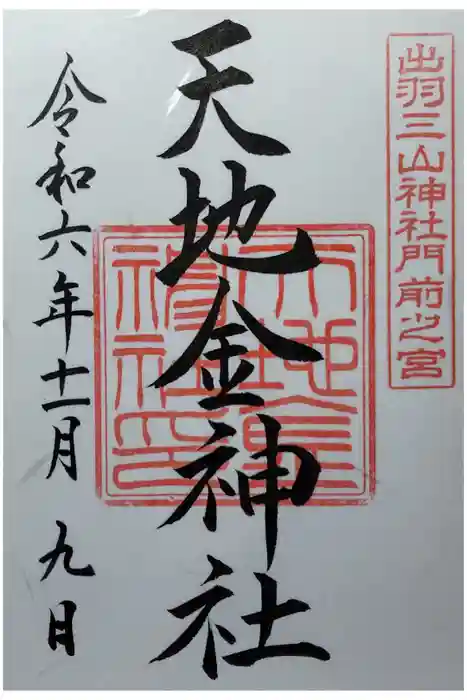 出羽三山神社門前之宮
天地金神社
令和六年十一月 九日